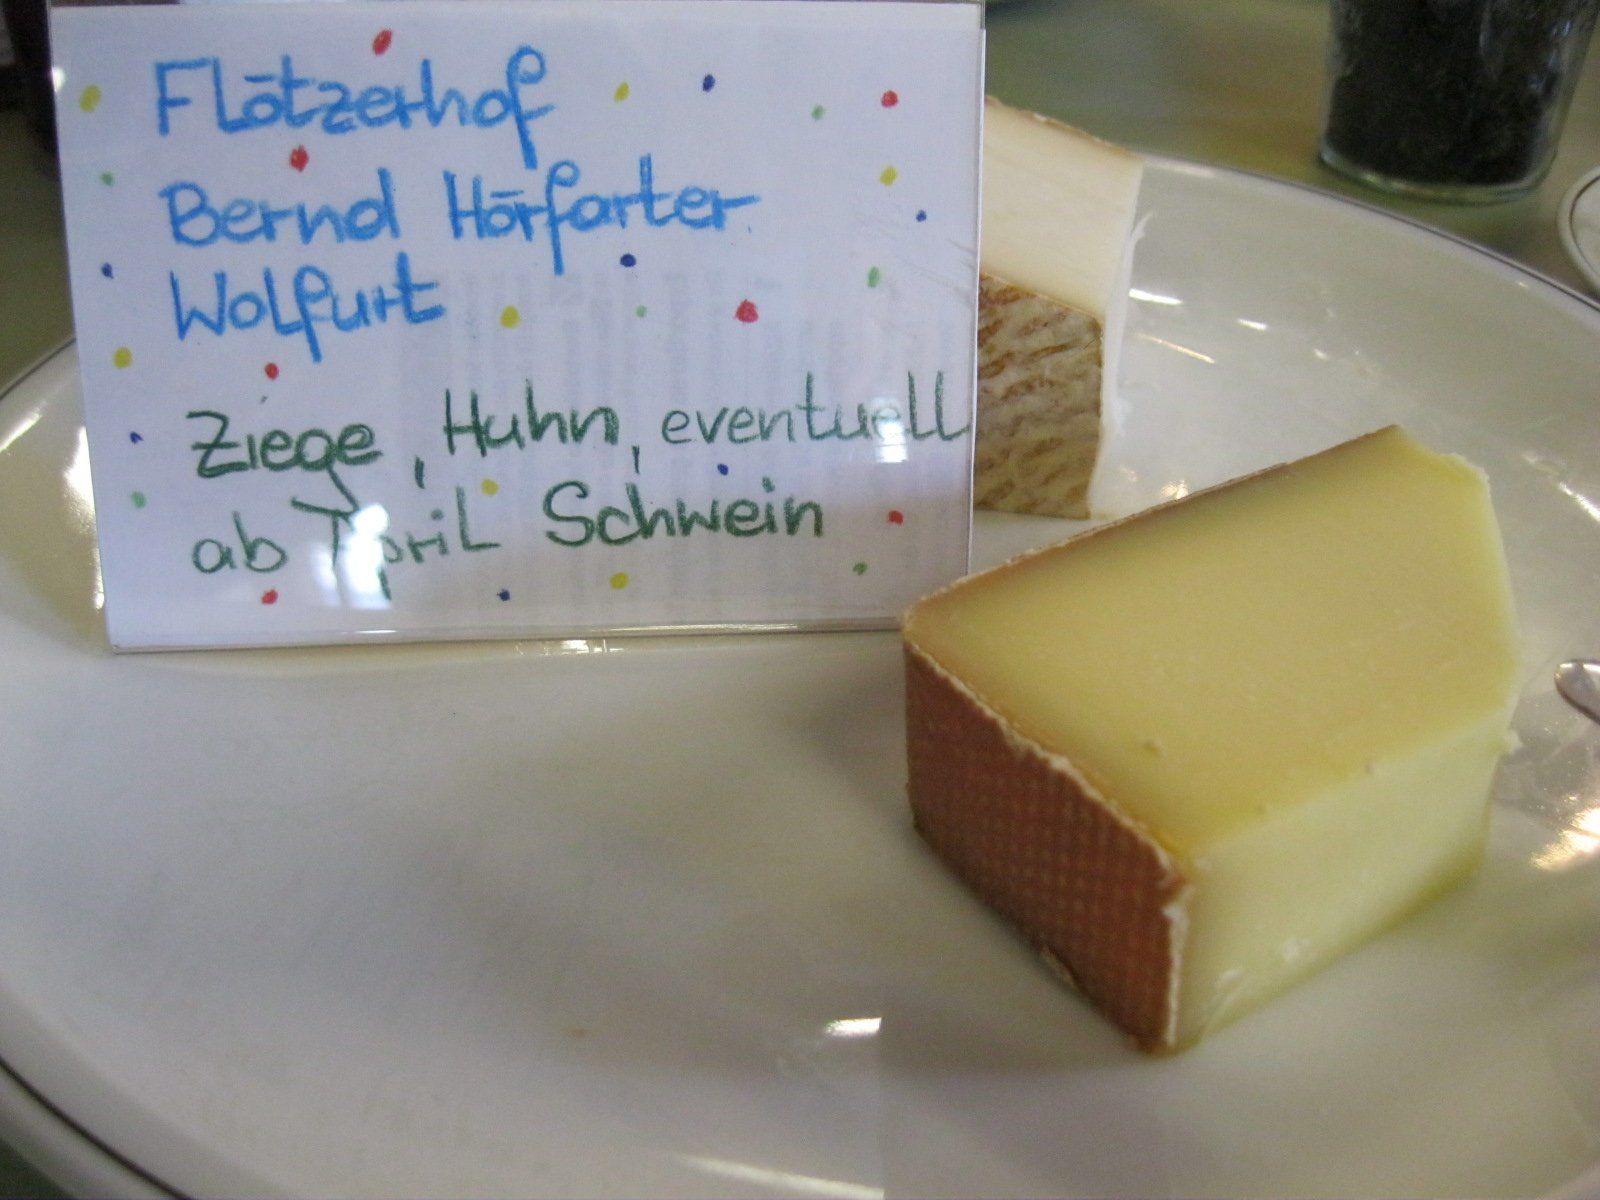 Flötzerhof
Bernd Hörfarter
Wolfurt
Ziege, Huhn, eventuell
ab April Schwein